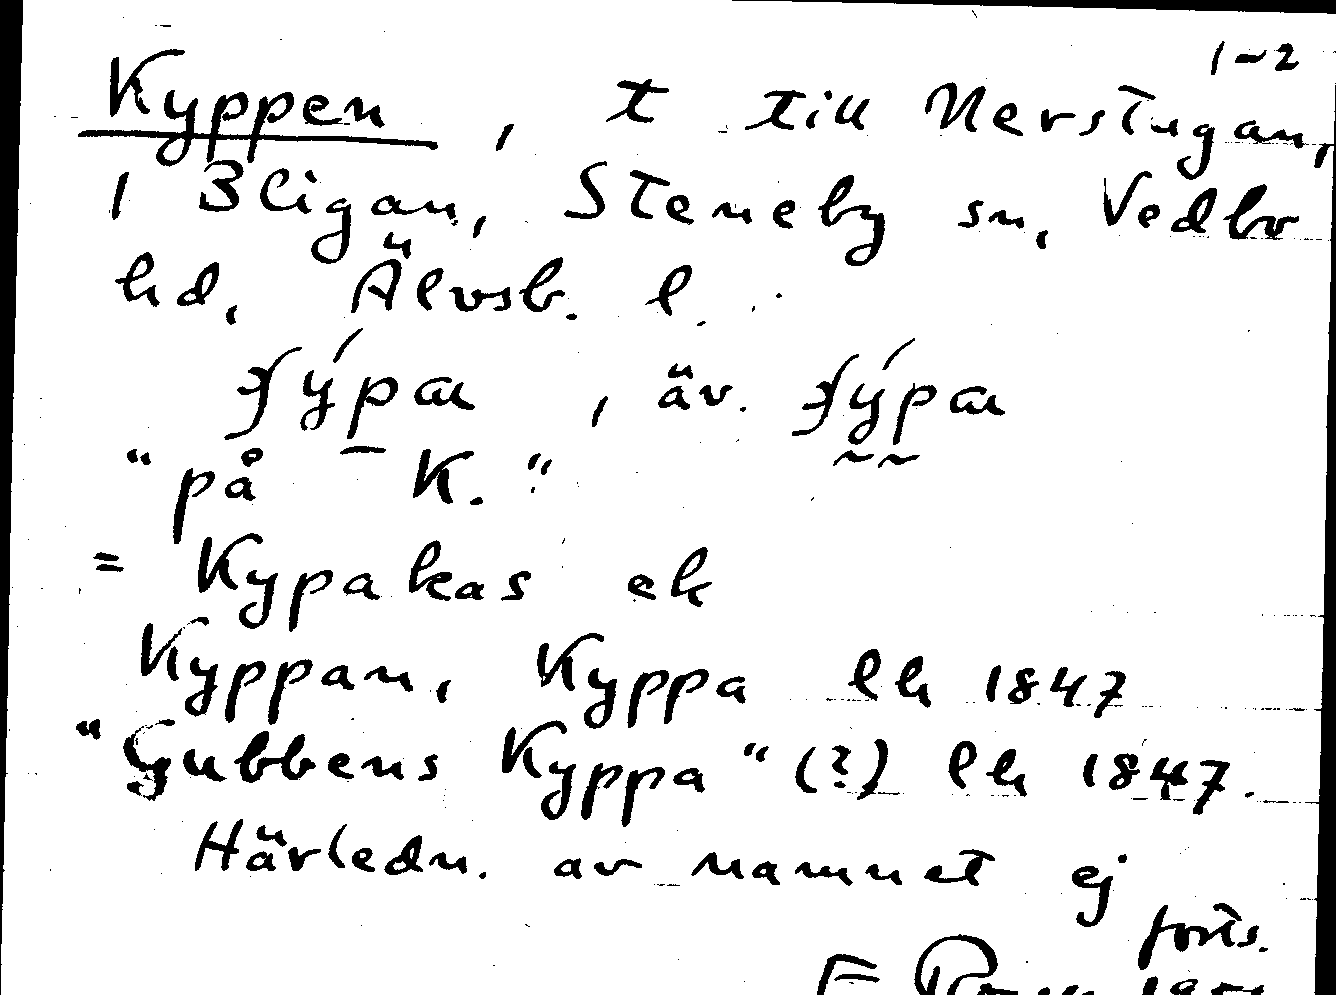 1~2
Kyppen, t till Nerstugan,
1 Bligan, Steneby sn, Vedbo
hd, Älvsb. l.
, äv.
"på K."
= Kypakas ek
Kyppan, Kyppa lh 1847
"Gubbens Kyppa" (?) lh 1847.
Härledn. av namnet ej
forts.